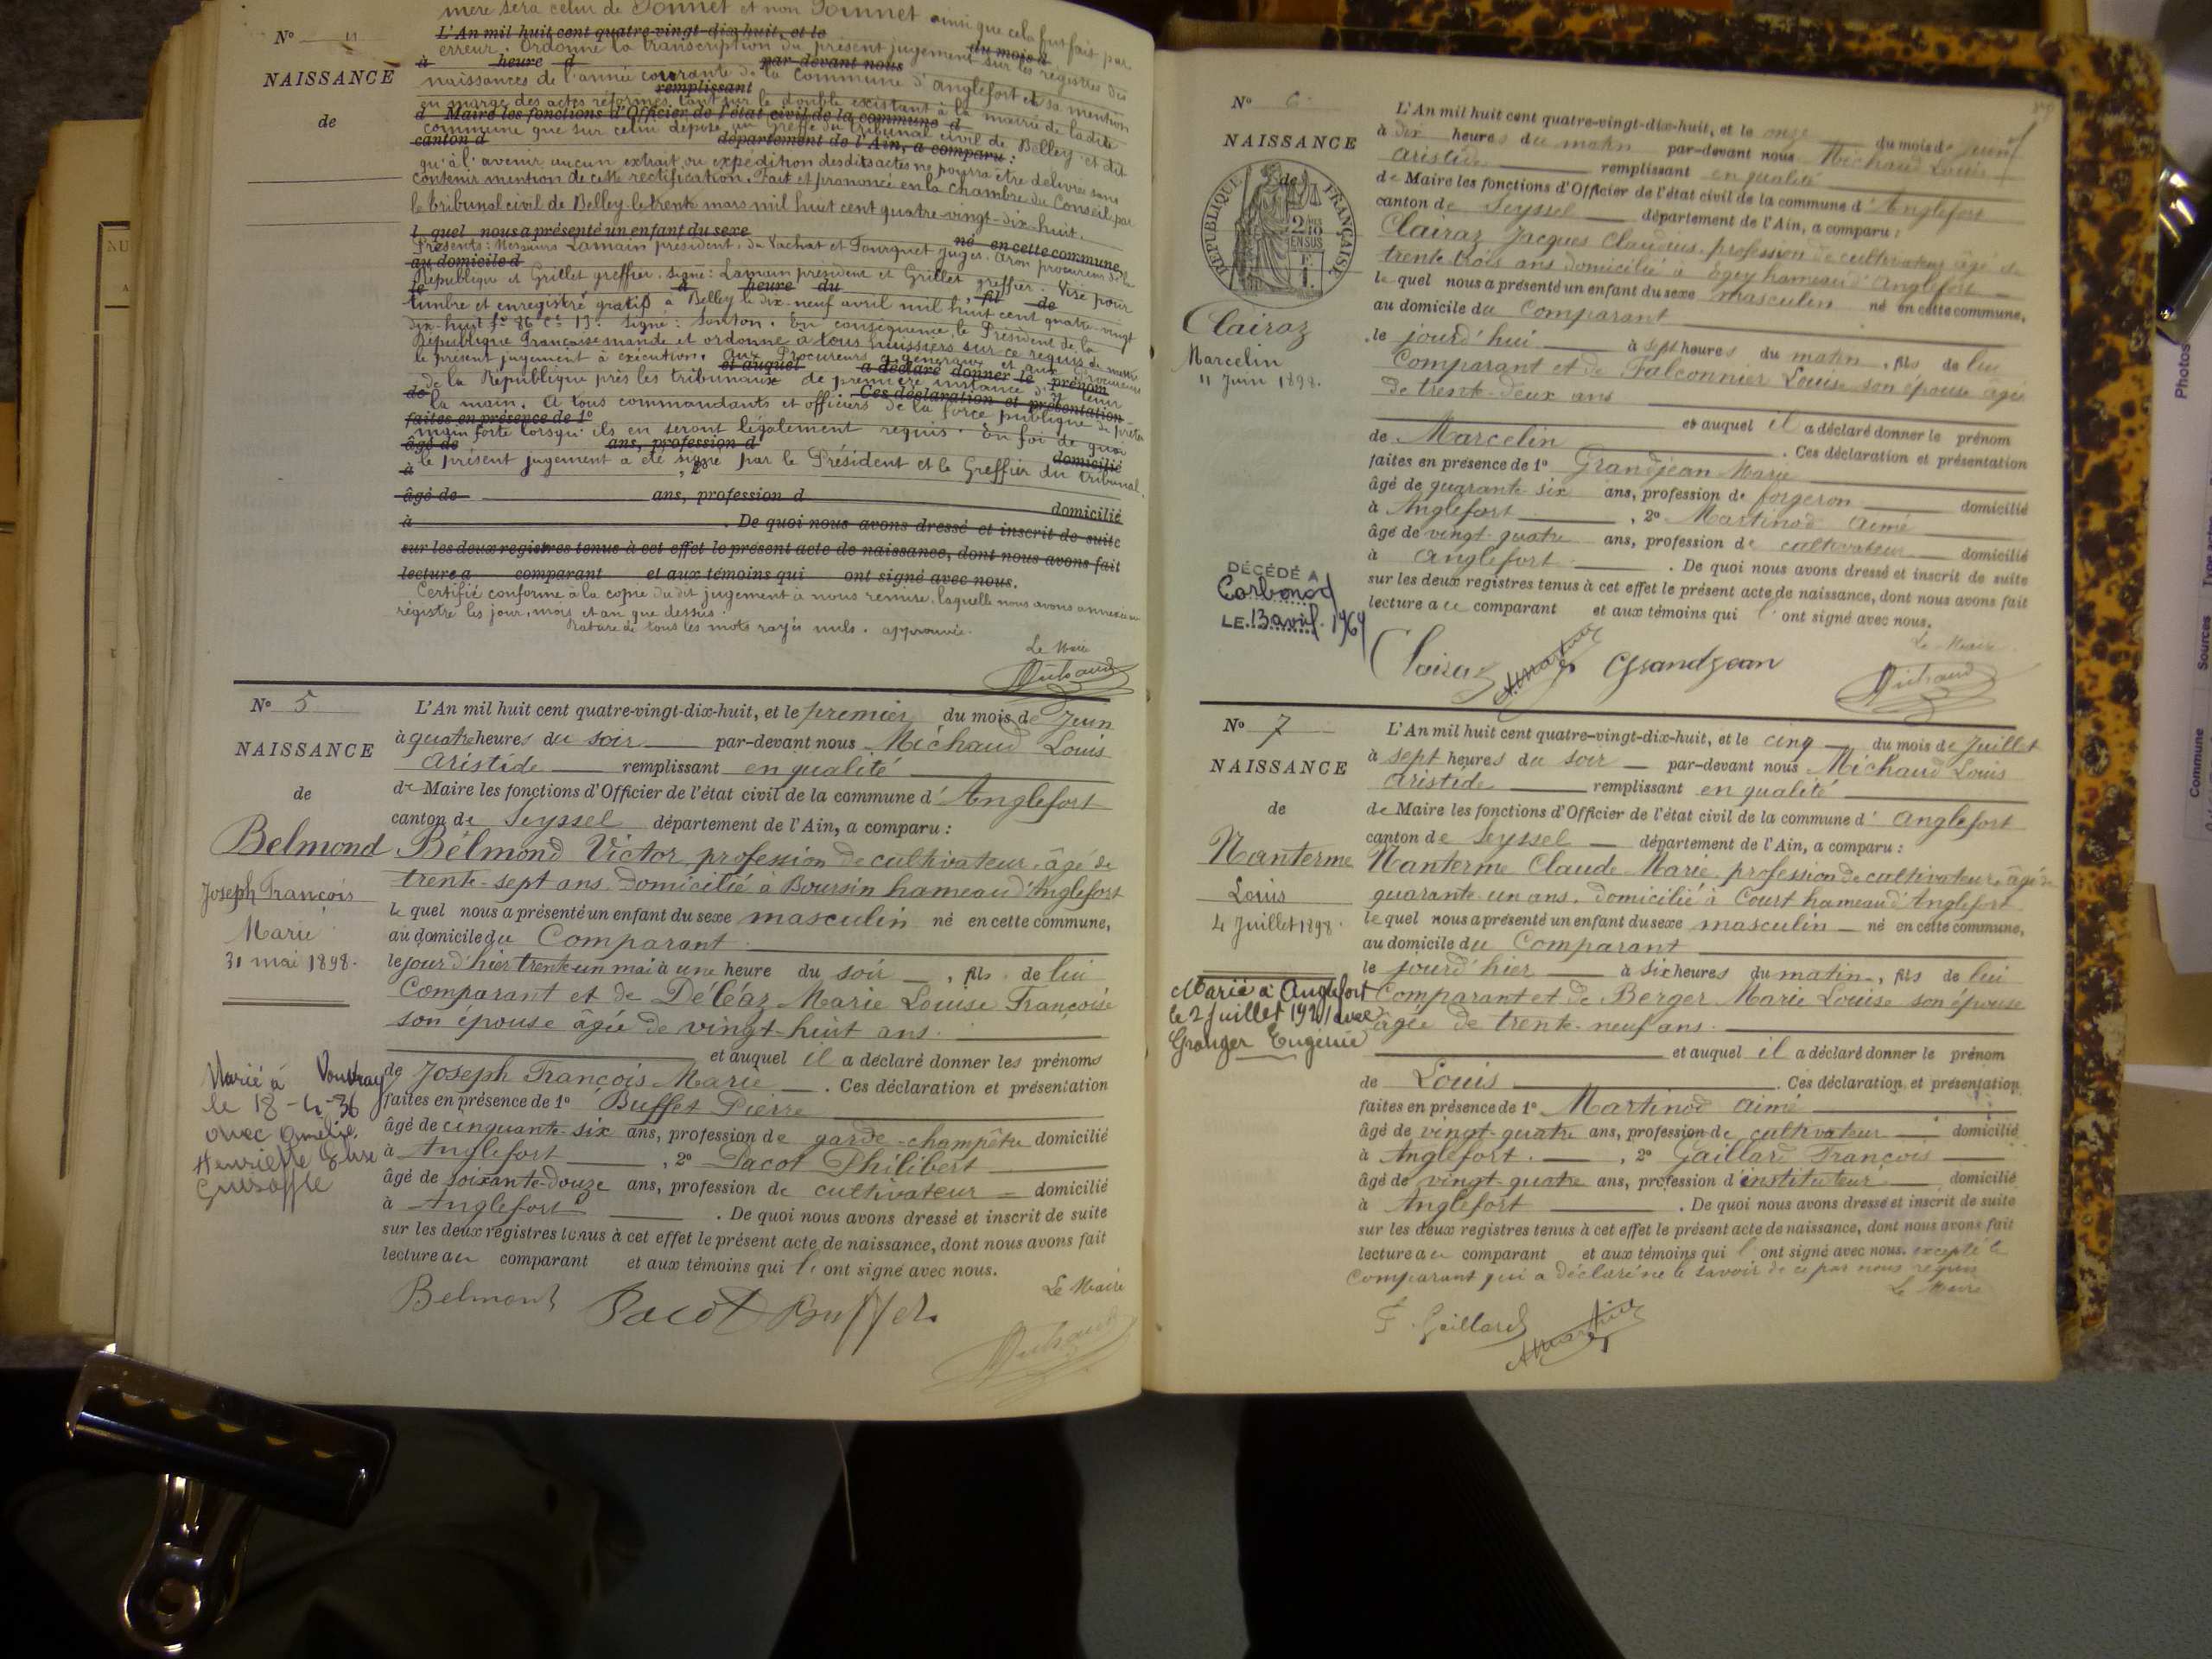 mère sera celui de Donnet et non Donnet ainsi que cela fut fait par
N° 4
L'An mil huit cent quatre-vingt-dix-huit, et le
du mois d
erreur. Ordonne la transcription du présent jugement sur les registres des
à heure d par-devant nous
NAISSANCE
naissances de l'année courante de la Commune d'Anglefort et sa mention
remplissant
en marge des actes réformés tant sur le double existant à la mairie de ladite
de
d Maire les fonctions d'Officier de l'état civil de la commune d
commune que sur celui déposé au greffe du tribunal civil de Belley et dit
canton d département de l'Ain, a comparu :
qu'à l'avenir aucun extrait ou expédition desdits actes ne pourra être délivré sans
contenir mention de cette rectification. Fait et prononcé en la chambre du Conseil par
le tribunal civil de Belley le trente mars mil huit cent quatre-vingt-dix-huit.
l quel nous a présenté un enfant du sexe
né en cette commune,
Présents : Messieurs Lamain président, du Vachat et Fourquet juges, Aron procureur de la
au domicile d
République et Grillet greffier. Signé : Lamain président et Grillet greffier. Visé pour
le à heure du
timbre et enregistré gratis à Belley le dix-neuf avril mil huit cent quatre-vingt
, fil de
dix-huit f° 86 c° 13. Signé : Sonton. En conséquence le Président de la
République Française mande et ordonne à tous huissiers sur ce requis de mettre
le présent jugement à exécution. Aux Procureurs généraux et aux Procureurs
et auquel a déclaré donner le prénom
de la République près les tribunaux de première instance d'y tenir
de . Ces déclaration et présentation
la main. A tous commandants et officiers de la force publique de prêter
faites en présence de 1°
main forte lorsqu'ils en seront légalement requis. En foi de quoi
âgé de ans, profession d domicilié
le présent jugement a été signé par le Président et le Greffier du tribunal.
à , 2°
âgé de ans, profession d domicilié
à . De quoi nous avons dressé et inscrit de suite
sur les deux registres tenus à cet effet le présent acte de naissance, dont nous avons fait
lecture a comparant et aux témoins qui ont signé avec nous.
Certifié conforme à la copie dudit jugement à nous remise, laquelle nous avons annexée au
régistre les jour, mois et an que dessus.
Rature de tous les mots rayés nuls. approuvée.
Le Maire
Michaud
N° 5
NAISSANCE
de
Belmond
Joseph François
Marie
31 mai 1898.
Marié à Vouvray
le 18-4-36
avec Amélie
Henriette
L'An mil huit cent quatre-vingt-dix-huit, et le premier du mois de Juin
à quatre heures du soir par-devant nous Michaud Louis
Aristide remplissant en qualité
de Maire les fonctions d'Officier de l'état civil de la commune d'Anglefort
canton de Seyssel département de l'Ain, a comparu :
Belmond Victor, profession de cultivateur, âgé de
trente-sept ans. Domicilié à Boursin hameau d'Anglefort
le quel nous a présenté un enfant du sexe masculin né en cette commune,
au domicile du Comparant
le jour d'hier trente un mai à une heure du soir , fils de lui
Comparant et de Déléaz Marie Louise Françoise
son épouse âgée de vingt-huit ans.
et auquel il a déclaré donner les prénoms
de Joseph François Marie . Ces déclaration et présentation
faites en présence de 1° Buffet Pierre
âgé de cinquante-six ans, profession de garde-champêtre domicilié
à Anglefort , 2° Pacot Philibert
âgé de soixante-douze ans, profession de cultivateur domicilié
à Anglefort . De quoi nous avons dressé et inscrit de suite
sur les deux registres tenus à cet effet le présent acte de naissance, dont nous avons fait
lecture au comparant et aux témoins qui l' ont signé avec nous.
Le Maire
Belmond Pacot Buffet
Michaud
N° 6
NAISSANCE
de
RÉPUBLIQUE FRANÇAISE
2/10 EN SUS
Clairaz
Marcelin
11 Juin 1898.
DÉCÉDÉ A
Corbonod
LE 13 avril 1969
L'An mil huit cent quatre-vingt-dix-huit, et le onze du mois de Juin
à dix heures du matin par-devant nous Michaud Louis
Aristide remplissant en qualité
de Maire les fonctions d'Officier de l'état civil de la commune d'Anglefort
canton de Seyssel département de l'Ain, a comparu :
Clairaz Jacques Claudius, profession de cultivateur âgé de
trente-trois ans domicilié à Egey hameau d'Anglefort
le quel nous a présenté un enfant du sexe masculin né en cette commune,
au domicile du Comparant
le jourd'hui à sept heures du matin , fils de lui
Comparant et de Falconnier Louise son épouse âgée
de trente-deux ans
et auquel il a déclaré donner le prénom
de Marcelin . Ces déclaration et présentation
faites en présence de 1° Grandjean Marie
âgé de quarante six ans, profession de forgeron domicilié
à Anglefort , 2° Martinod Aimé
âgé de vingt-quatre ans, profession de cultivateur domicilié
à Anglefort . De quoi nous avons dressé et inscrit de suite
sur les deux registres tenus à cet effet le présent acte de naissance, dont nous avons fait
lecture au comparant et aux témoins qui l' ont signé avec nous.
Le Maire
Clairaz A Martinod Grandjean
Michaud
N° 7
NAISSANCE
de
Nanterme
Louis
4 Juillet 1898.
Marié à Anglefort
le 2 Juillet 1921 avec
Granger Eugénie
L'An mil huit cent quatre-vingt-dix-huit, et le cinq du mois de Juillet
à sept heures du soir par-devant nous Michaud Louis
Aristide remplissant en qualité
de Maire les fonctions d'Officier de l'état civil de la commune d'Anglefort
canton de Seyssel département de l'Ain, a comparu :
Nanterme Claude Marie, profession de cultivateur, âgé de
quarante un ans, domicilié à Court hameau d'Anglefort
le quel nous a présenté un enfant du sexe masculin né en cette commune,
au domicile du Comparant
le jourd'hier à six heures du matin , fils de lui
Comparant et de Berger Marie Louise son épouse
âgée de trente-neuf ans.
et auquel il a déclaré donner le prénom
de Louis . Ces déclaration et présentation
faites en présence de 1° Martinod Aimé
âgé de vingt-quatre ans, profession de cultivateur domicilié
à Anglefort , 2° Gaillard François
âgé de vingt-quatre ans, profession d'instituteur domicilié
à Anglefort . De quoi nous avons dressé et inscrit de suite
sur les deux registres tenus à cet effet le présent acte de naissance, dont nous avons fait
lecture au comparant et aux témoins qui l' ont signé avec nous. excepté le
comparant qui a déclaré ne le savoir de ce par nous requis
Le Maire
F. Gaillard A Martinod
Photos
Commune Sources Type acte